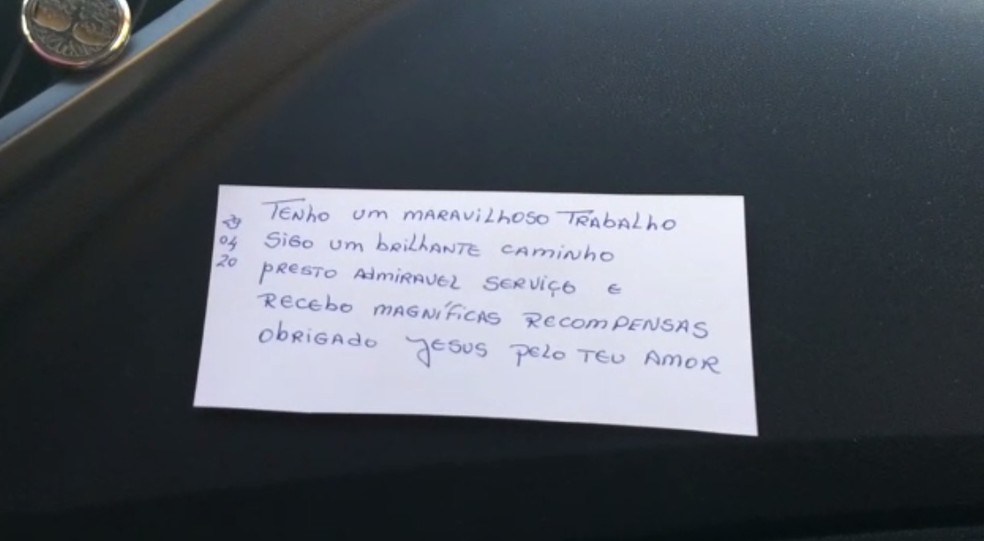 TENHO UM MARAVILHOSO TRABALHO
SIGO UM BRILHANTE CAMINHO
PRESTO ADMIRAVEL SERVIÇO E
RECEBO MAGNÍFICAS RECOMPENSAS
OBRIGADO JESUS PELO TEU AMOR
29
04
20